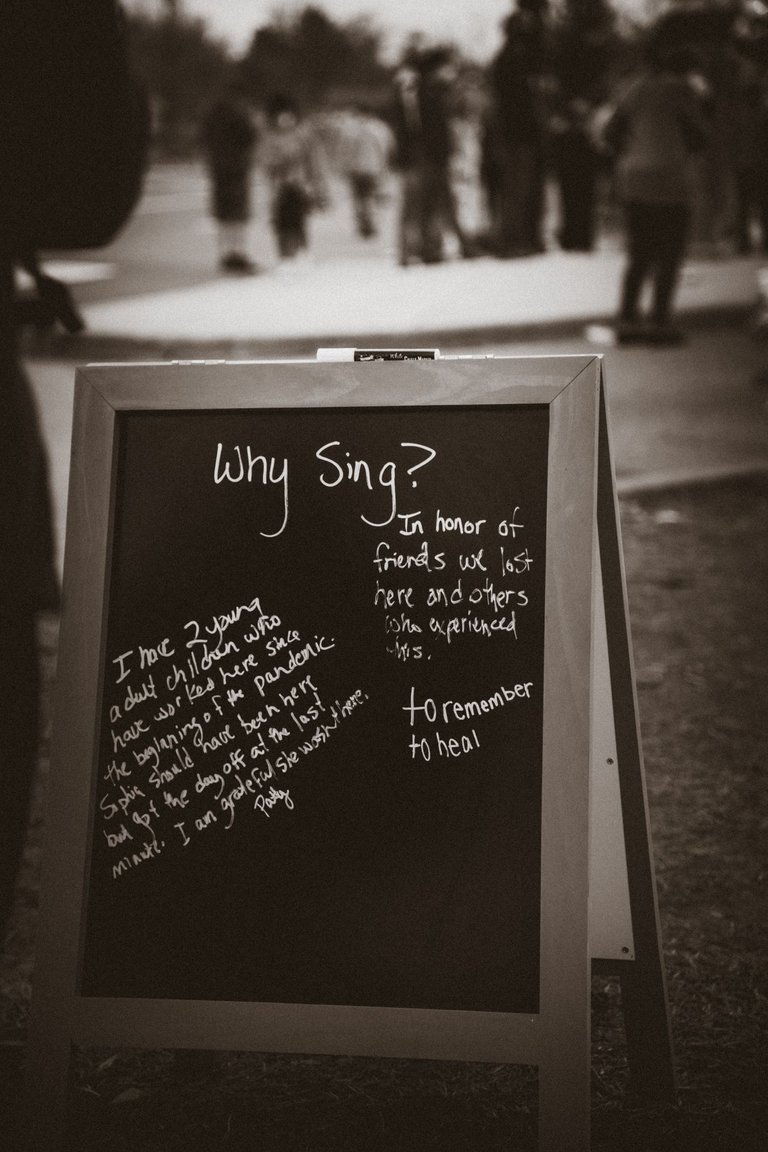 Why Sing?
In honor of
friends we lost
here and others
who experienced
this.
to remember
to heal
I have 2 young
adult children who
have worked here since
the beginning of the pandemic.
Sophia should have been here
but got the day off at the last
minute. I am grateful she wasn't here.
Patty